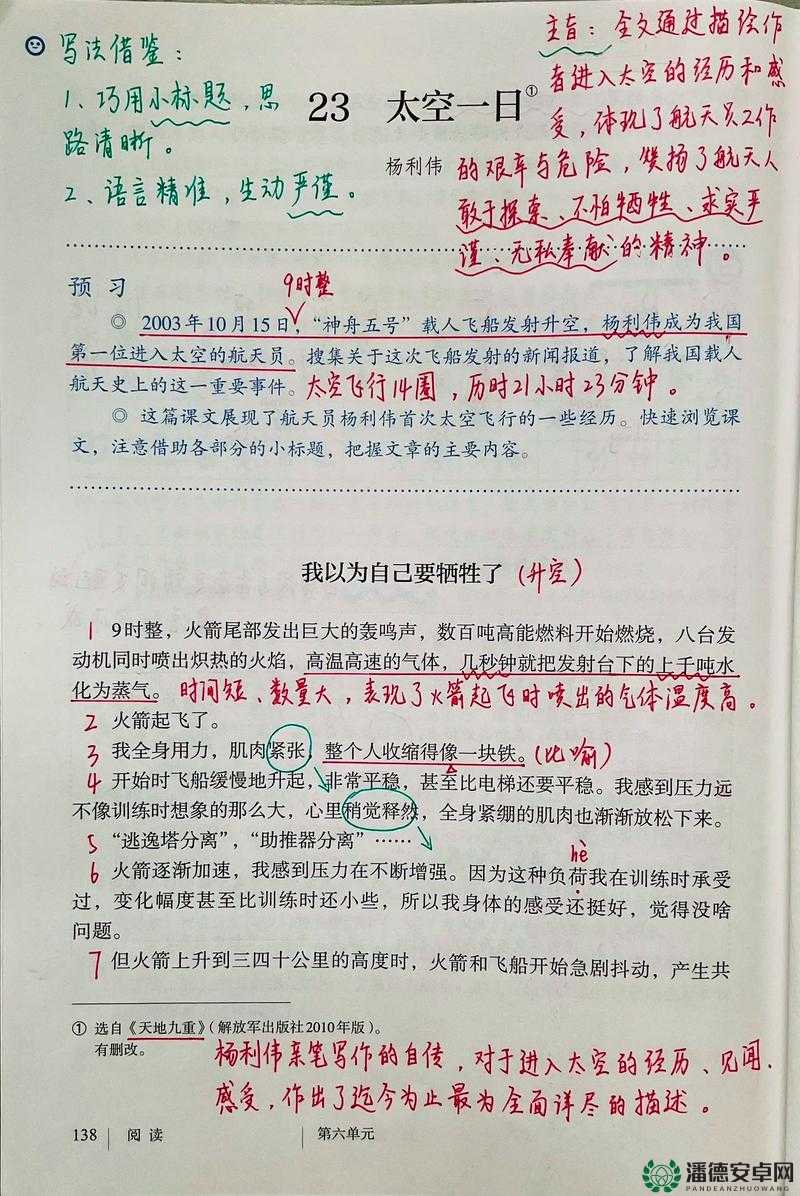 写法借鉴：
1、巧用小标题，思
路清晰。
2、语言精准，生动严谨。
主旨：全文通过描绘作
者进入太空的经历和感
受，体现了航天员工作
的艰辛与危险，赞扬了航天人
敢于探索、不怕牺牲、求实严
谨、无私奉献的精神。
23 太空一日①
杨利伟
预 习
9时整
◎ 2003年10月15日，“神舟五号”载人飞船发射升空，杨利伟成为我国
第一位进入太空的航天员。搜集关于这次飞船发射的新闻报道，了解我国载人
航天史上的这一重要事件。太空飞行14圈，历时21小时23分钟。
◎ 这篇课文展现了航天员杨利伟首次太空飞行的一些经历。快速浏览课
文，注意借助各部分的小标题，把握文章的主要内容。
我以为自己要牺牲了（升空）
1 9时整，火箭尾部发出巨大的轰鸣声，数百吨高能燃料开始燃烧，八台发
动机同时喷出炽热的火焰，高温高速的气体，几秒钟就把发射台下的上千吨水
化为蒸气。时间短、数量大，表现了火箭起飞时喷出的气体温度高。
2 火箭起飞了。
3 我全身用力，肌肉紧张，整个人收缩得像一块铁。（比喻）
4 开始时飞船缓慢地升起，非常平稳，甚至比电梯还要平稳。我感到压力远
不像训练时想象的那么大，心里稍觉释然，全身紧绷的肌肉也渐渐放松下来。
5 “逃逸塔分离”，“助推器分离”……
hè
6 火箭逐渐加速，我感到压力在不断增强。因为这种负荷我在训练时承受
过，变化幅度甚至比训练时还小些，所以我身体的感受还挺好，觉得没啥
问题。
7 但火箭上升到三四十公里的高度时，火箭和飞船开始急剧抖动，产生共
① 选自《天地九重》（解放军出版社2010年版）。
有删改。
杨利伟亲笔写作的自传，对于进入太空的经历、见闻、
感受，作出了迄今为止最为全面详尽的描述。
138 阅 读 第六单元
潘德安卓网
PANDEANZHUOWANG